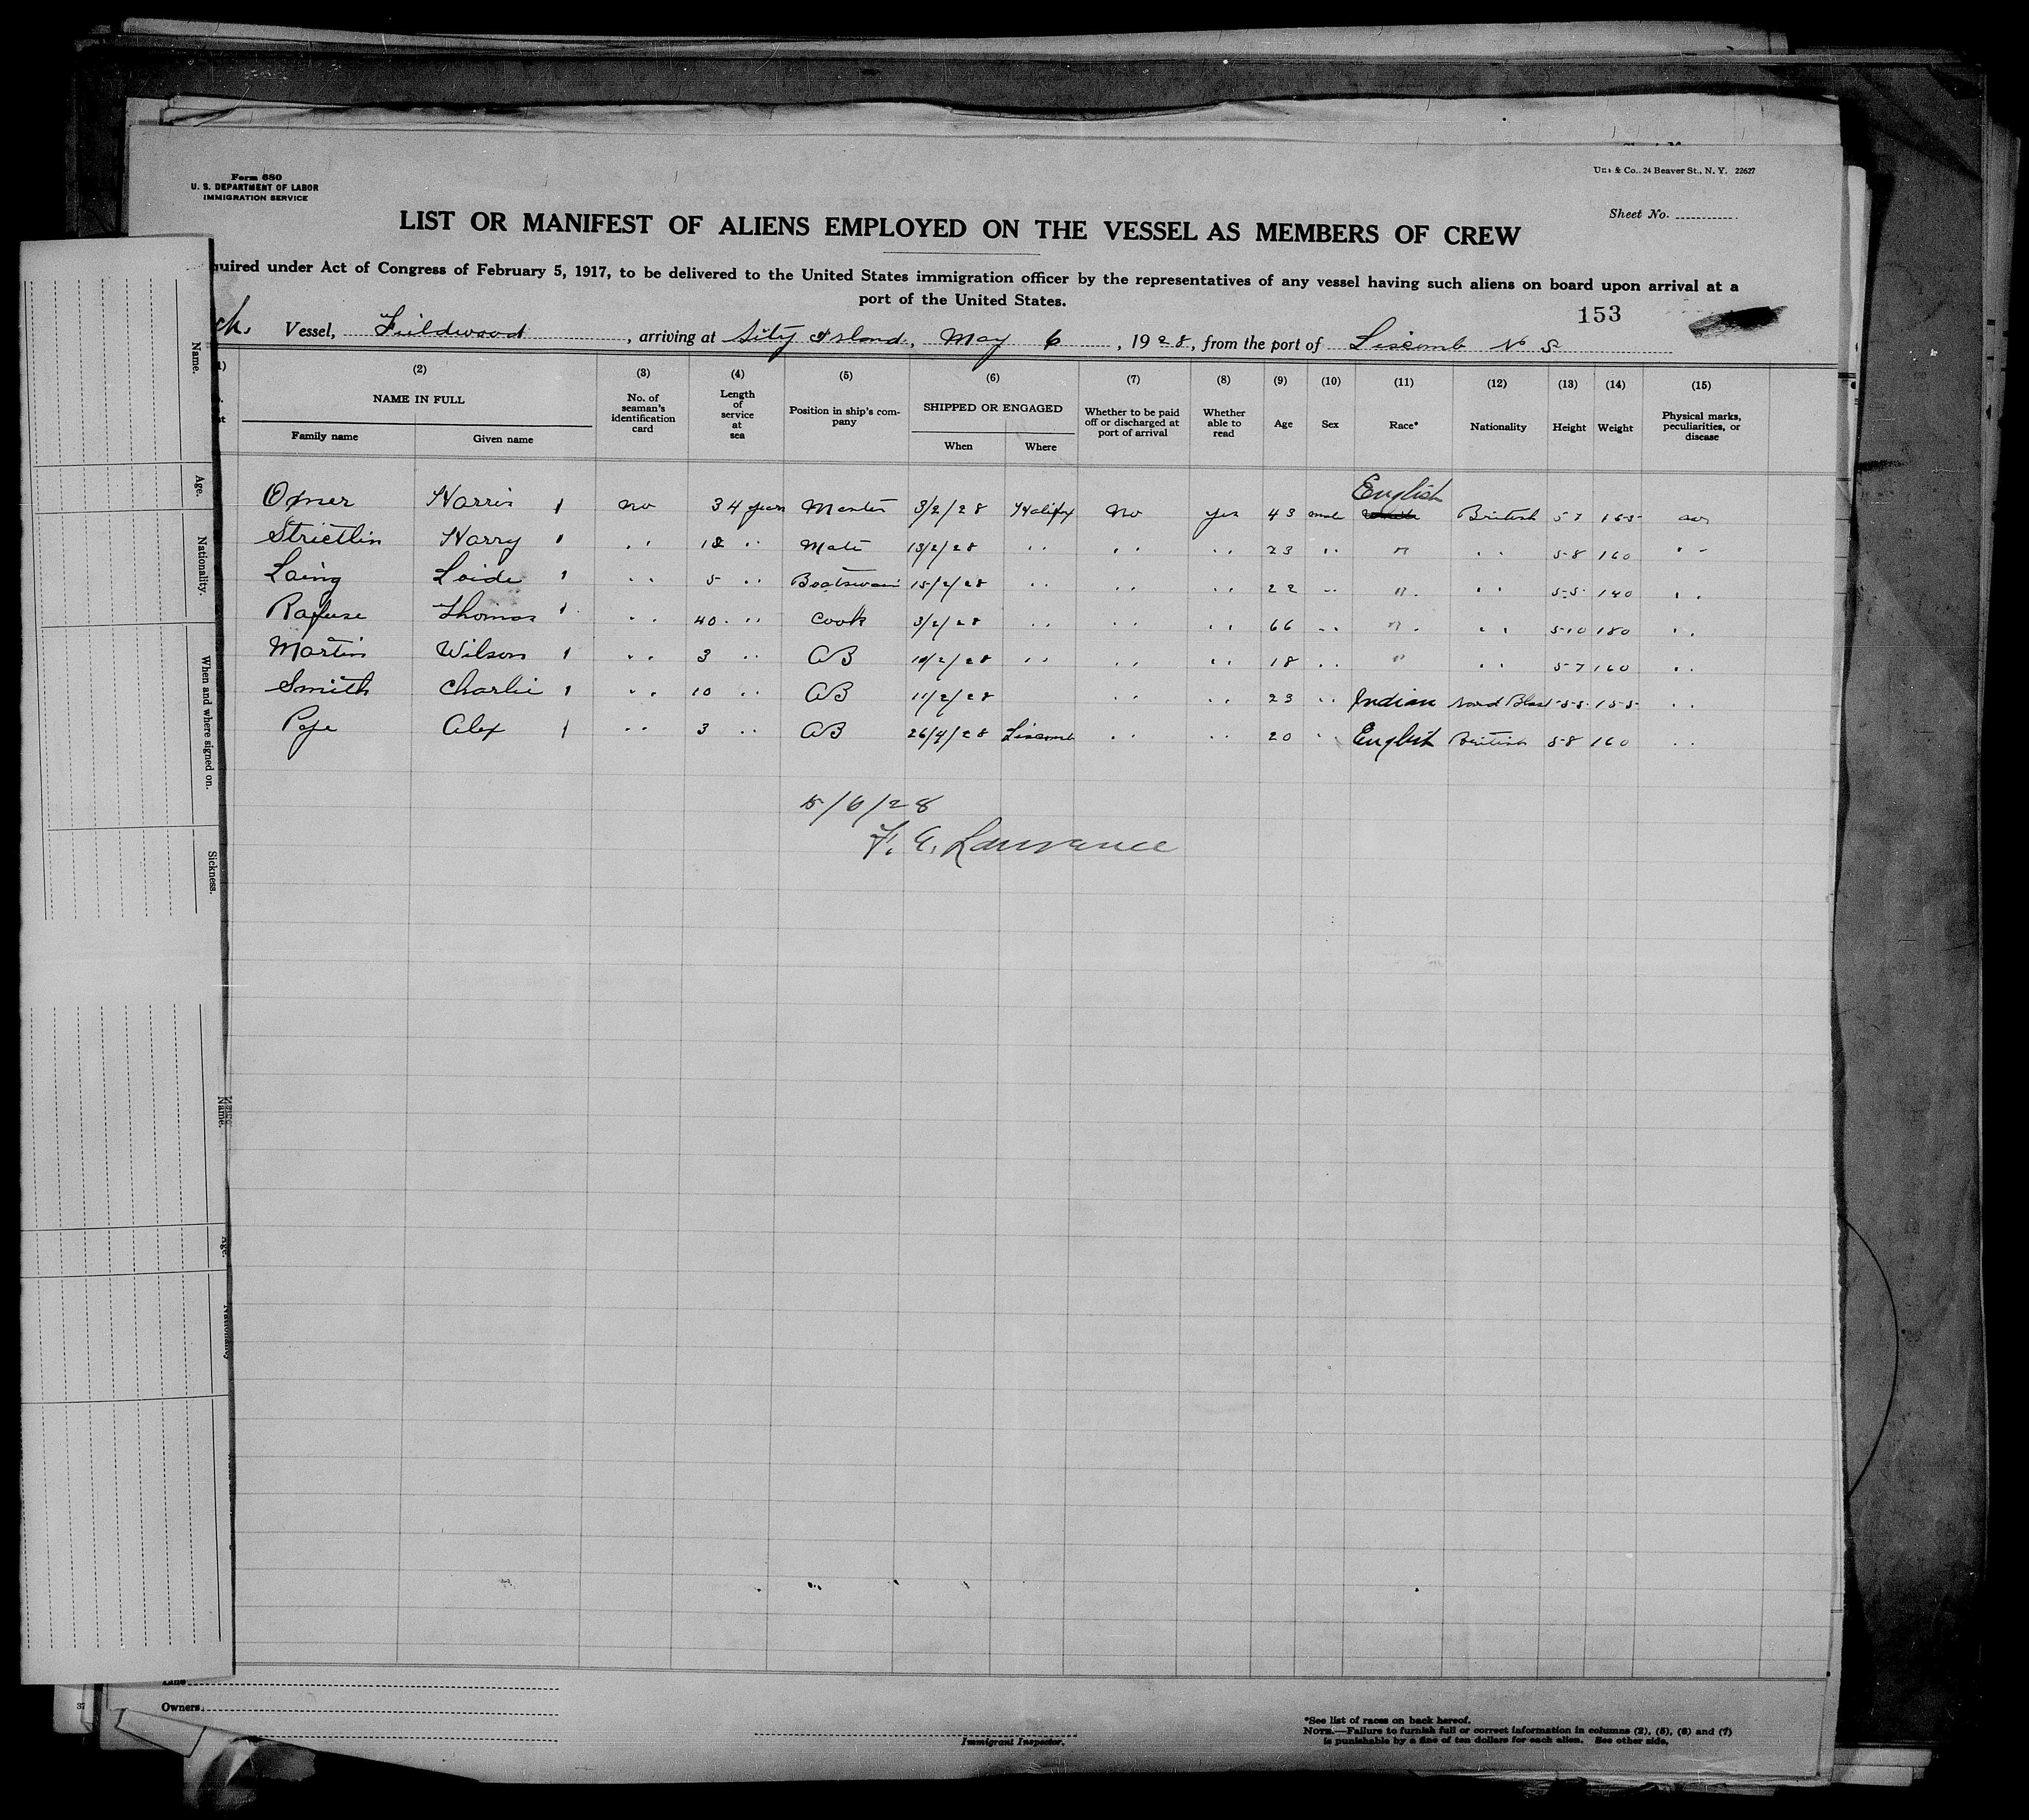 Form 680
U. S. DEPARTMENT OF LABOR
IMMIGRATION SERVICE
& Co., 24 Beaver St., N. Y. 22627
Sheet No.
LIST OR MANIFEST OF ALIENS EMPLOYED ON THE VESSEL AS MEMBERS OF CREW
quired under Act of Congress of February 5, 1917, to be delivered to the United States immigration officer by the representatives of any vessel having such aliens on board upon arrival at a
port of the United States.
153
Vessel, Fieldwood, arriving at Sity Island, May 6, 1928, from the port of Liscomb N S
(2) (3) (4) (5) (6) (7) (8) (9) (10) (11) (12) (13) (14) (15)
NAME IN FULL Family name Given name No. of seaman's identification card Length of service at sea Position in ship's company SHIPPED OR ENGAGED When Where Whether to be paid off or discharged at port of arrival Whether able to read Age Sex Race* Nationality Height Weight Physical marks, peculiarities, or disease
Oxner Harris no 34 years Master 3/2/28 Halifax No yes 43 male English British 5-7 165
Strictlin Harry " " 12 " " Mate 13/2/28 " " " " " " 23 " " " " " 5-8 160 " "
Laing Loide " " 5 " " Boatswain 15/2/28 " " " " " " 22 " " " " " 5-5 140 " "
Rafuse Thomas " " 40 " " Cook 3/2/28 " " " " " " 66 " " " " " 5-10 180 " "
Martin Wilson " " 3 " " AB 10/2/28 " " " " " " 18 " " " " " 5-7 160 " "
Smith Charlie " " 10 " " AB 11/2/28 " " " " 23 " " Indian 5-5 155 " "
Pope Alex " " 3 " " AB 26/4/28 Liscomb " " " " 20 " " English British 5-8 160 " "
5/6/28
F. E. Lawrance
Name.
Age.
Nationality.
When and where signed on.
Sickness.
Name.
Age.
Nationality
37
Line
Owners
Immigrant Inspector.
*See list of races on back hereof.
NOTE.—Failure to furnish full or correct information in columns (2), (5), (6) and (7)
is punishable by a fine of ten dollars for each alien. See other side.